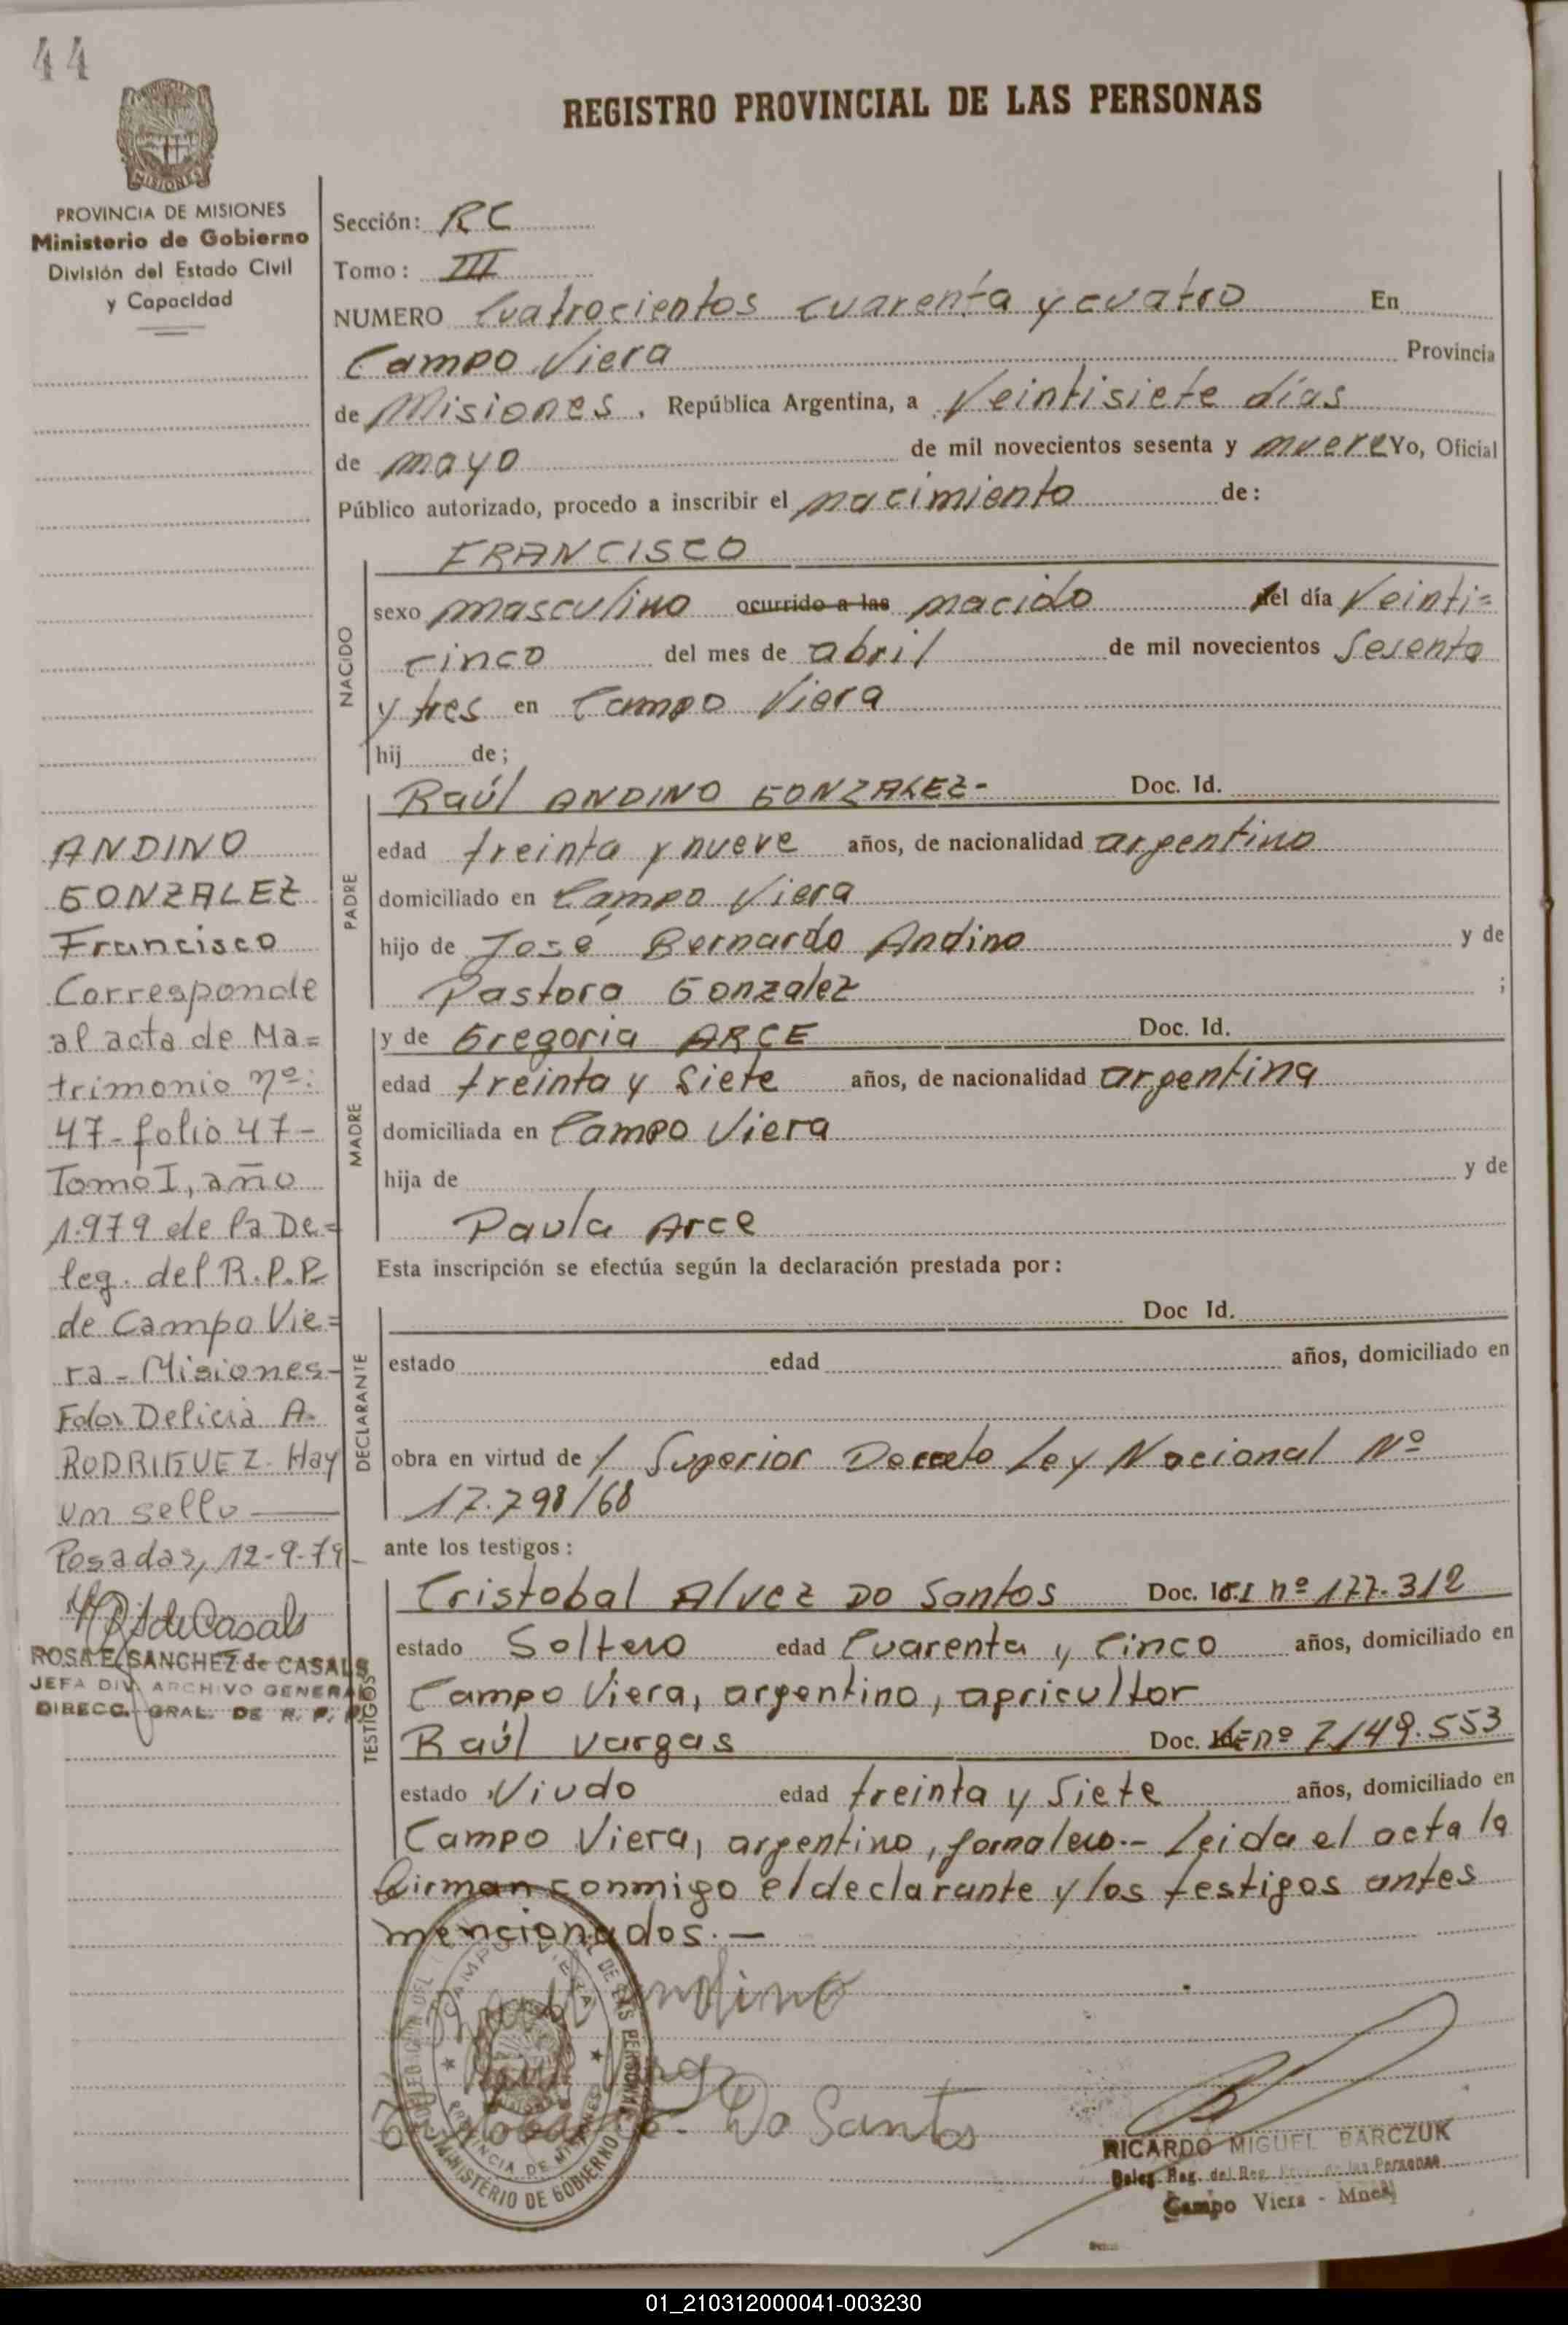 44
REGISTRO PROVINCIAL DE LAS PERSONAS
MISIONES
PROVINCIA DE MISIONES
Ministerio de Gobierno
División del Estado Civil
y Capacidad
Sección: RC
Tomo: III
NUMERO Cuatrocientos cuarenta y cuatro En
Campo Viera Provincia
de Misiones, República Argentina, a Veintisiete días
de mayo de mil novecientos sesenta y nueve Yo, Oficial
Público autorizado, procedo a inscribir el nacimiento de:
FRANCISCO
NACIDO
sexo masculino ocurrido a las nacido el día Veinti=
cinco del mes de abril de mil novecientos Sesenta
y tres en Campo Viera
hij de;
PADRE
Raúl ANDINO GONZALEZ- Doc. Id.
edad treinta y nueve años, de nacionalidad argentino
domiciliado en Campo Viera
hijo de José Bernardo Andino y de
Pastora Gonzalez ;
MADRE
y de Gregoria ARCE Doc. Id.
edad treinta y Siete años, de nacionalidad argentina
domiciliada en Campo Viera
hija de y de
Paula Arce
Esta inscripción se efectúa según la declaración prestada por:
DECLARANTE
Doc Id.
estado edad años, domiciliado en
obra en virtud de / Superior Decreto Ley Nacional Nº
17.798/68
ante los testigos:
TESTIGOS
Cristobal Alvez Do Santos Doc. I nº 177.312
estado Soltero edad Cuarenta y Cinco años, domiciliado en
Campo Viera, argentino, agricultor
Raúl Vargas Doc. nº 7.149.553
estado Viudo edad treinta y Siete años, domiciliado en
Campo Viera, argentino, jornalero.- Leida el acta la
firman conmigo el declarante y los testigos antes
mencionados.-
ANDINO
GONZALEZ
Francisco
Corresponde
al acta de Ma=
trimonio nº:
47-folio 47-
Tomo I, año
1.979 de la De=
leg. del R.P.P.
de Campo Vie=
ra-Misiones-
Fdo. Delicia A.
RODRIGUEZ. Hay
un sello
Posadas, 12-9-79-
ROSA E. SANCHEZ de CASALS
JEFA DIV. ARCHIVO GENERAL
DIRECC. GRAL. DE R. P. P.
Andino
Do Santos
CAMPO VIERA
DE LAS PERSONAS
PROVINCIA DE MISIONES
MINISTERIO DE GOBIERNO
RICARDO MIGUEL BARCZUK
Deleg. Reg. del Reg. de las Personas
Campo Viera - Mnes
01_210312000041-003230